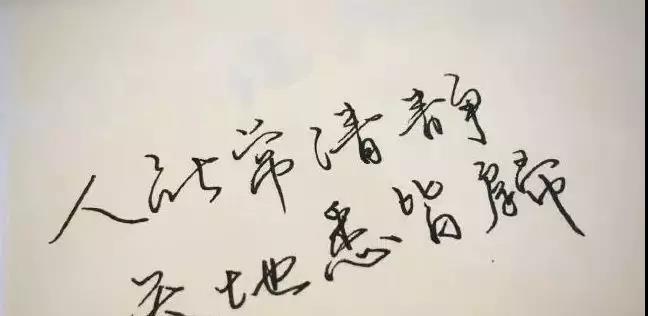 人能常清静
天地悉皆歸